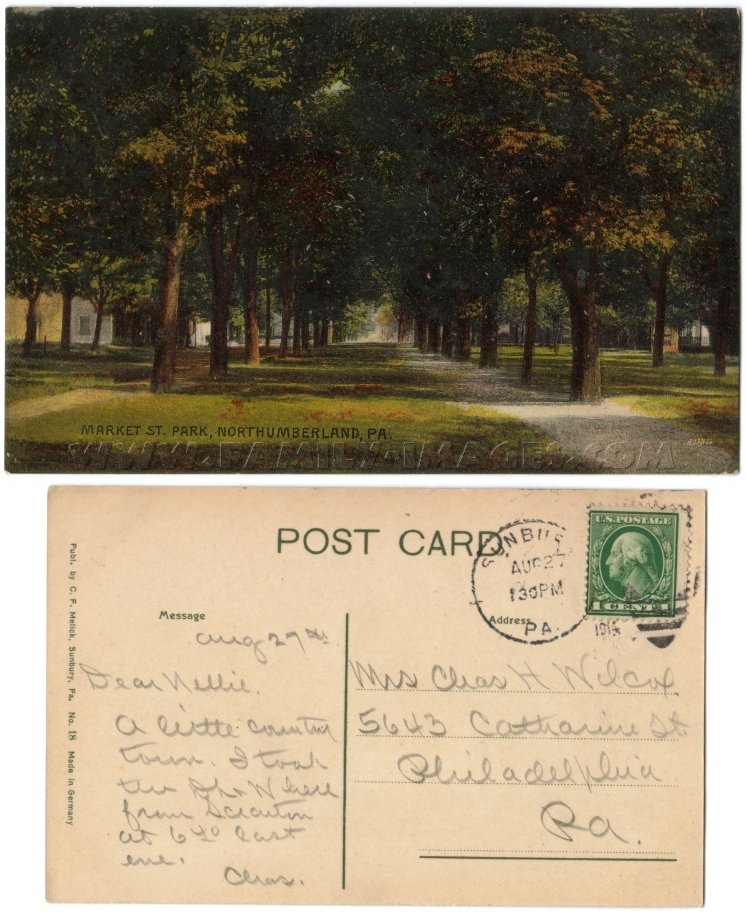 MARKET ST. PARK, NORTHUMBERLAND, PA.
WWW.FAMILY-IMAGES.COM
POST CARD
SUNBURY
AUG 27
130PM
PA.
U.S. POSTAGE
1 CENT 1
Message
Address
Aug 27th
Dear Nellie.
A little country
town. I took
the here
from Scranton
at 6 last
eve.
Chas.
Mrs Chas H Wilcox
5643 Catharine St
Philadelphia
Pa.
Publ. by C. F. Melick, Sunbury, Pa. No. 18 Made in Germany